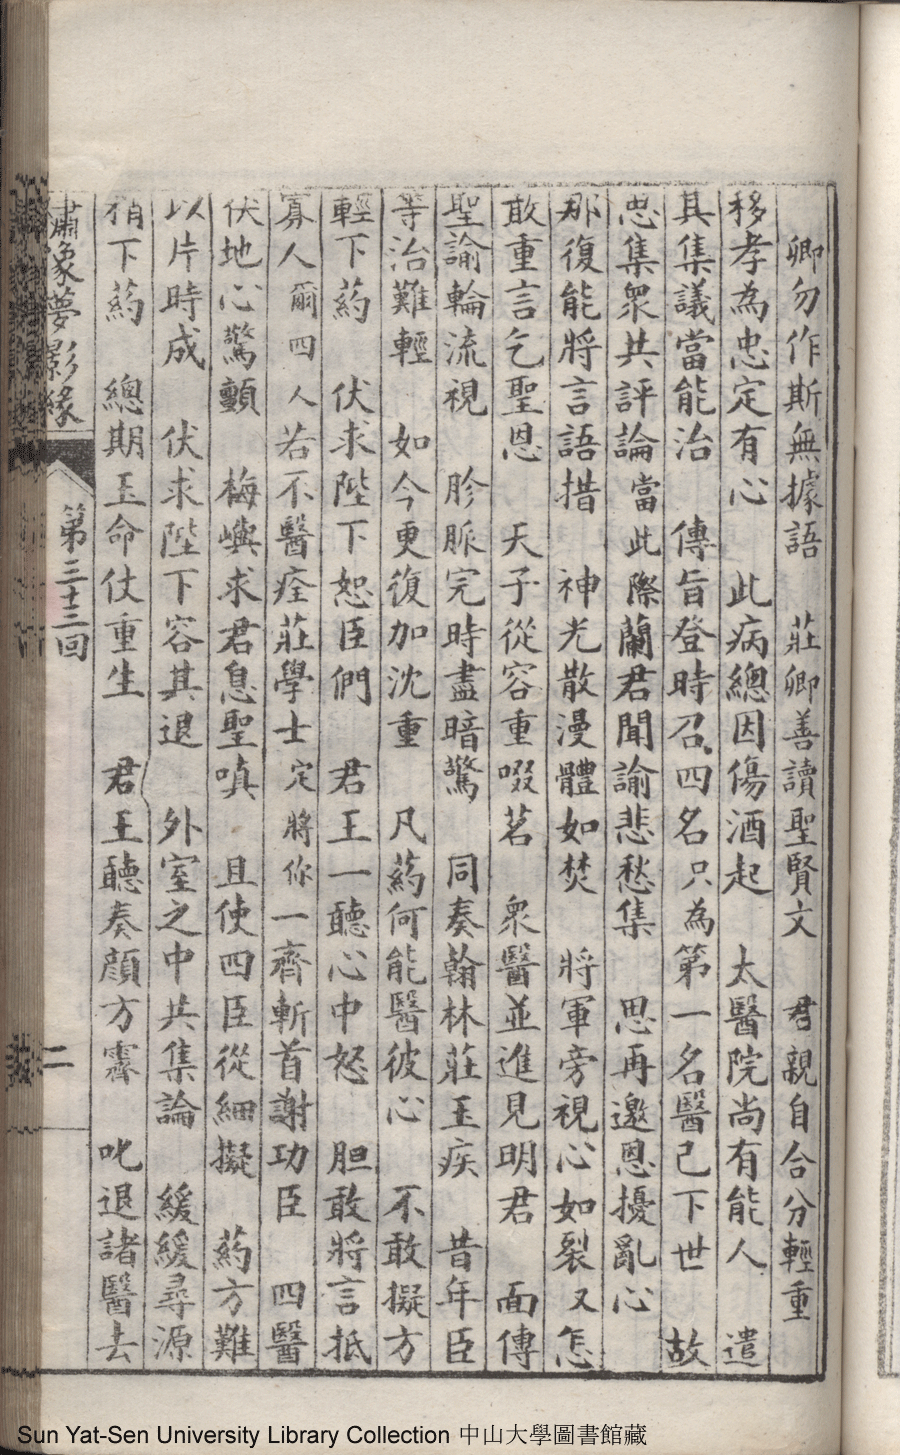 卿勿作斯無據語　莊卿善讀聖賢文　君親自合分輕重
移孝為忠定有心　此病總因傷酒起　太醫院尚有能人　遣
其集議當能治　傳旨登時召四名只為第一名醫已下世　故
思集衆共評論當此際蘭君聞諭悲愁集　思再邀恩擾亂心
那復能將言語措　神光散漫體如焚　將軍旁視心如裂又怎
敢重言乞聖恩　天子從容重啜茗　衆醫並進見明君　面傳
聖諭輪流視　胗脈完時盡暗驚　同奏翰林莊玉疾　昔年臣
等治難輕　如今更復加沈重　凡葯何能醫彼心　不敢擬方
輕下葯　伏求陛下恕臣們　君王一聽心中怒　胆敢將言抵
寡人爾四人若不醫痊莊學士定將你一齊斬首謝功臣　四醫
伏地心驚顫　梅嶼求君息聖嗔　且使四臣從細擬　葯方難
以片時成　伏求陛下容其退　外室之中共集論　緩緩尋源
稍下葯　總期玉命仗重生　君王聽奏顏方霽　叱退諸醫去
夢影緣
第三十三回
二
Sun Yat-Sen University Library Collection 中山大學圖書館藏